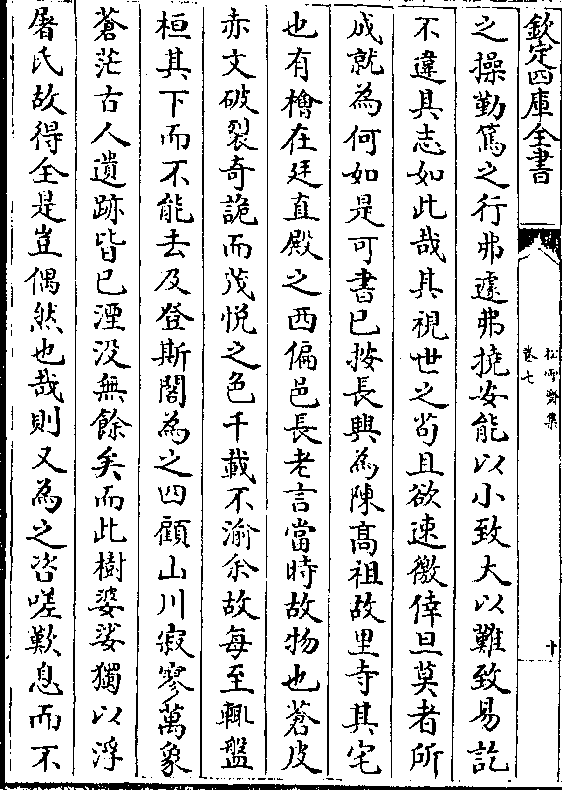 欽定四庫全書
松雪齋集
卷七
十
之操勤篤之行弗遽弗撓安能以小致大以難致易訖
不違其志如此哉其視世之苟且欲速徼倖旦莫者所
成就為何如是可書已按長興為陳髙祖故里寺其宅
也有檜在廷直殿之西偏邑長老言當時故物也蒼皮
赤文破裂奇詭而茂悦之色千載不渝余故每至輒盤
桓其下而不能去及登斯閣為之四顧山川寂寥萬象
蒼茫古人遺跡皆已湮没無餘矣而此樹婆娑獨以浮
屠氏故得全是豈偶然也哉則又為之咨嗟歎息而不